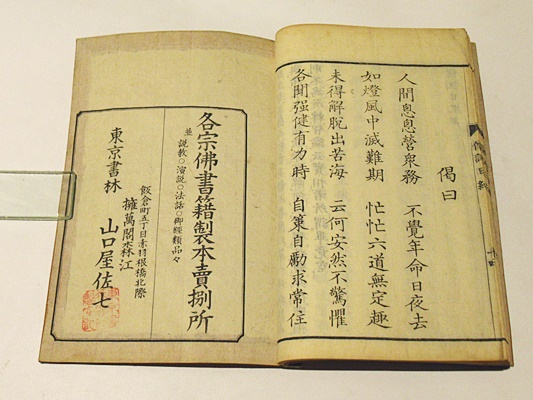 偈曰
人間悤悤營衆務　不覺年命日夜去
如燈風中滅難期　忙忙六道無定趣
未得解脫出苦海　云何安然不驚懼
各聞强健有力時　自策自勵求常住
各宗佛書籍製本賣捌所
並 說教○演說○法話○御經類品々
飯倉町五丁目赤羽根橋北際
東京書林　擁萬閣森江
山口屋佐七